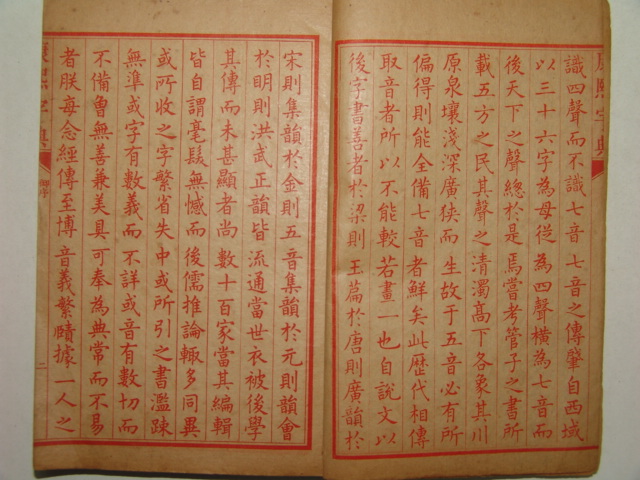 識四聲而不識七音七音之傳肇自西域
以三十六字為母從為四聲橫為七音而
後天下之聲總於是焉嘗考管子之書所
載五方之民其聲之清濁高下各象其川
原泉壤淺深廣狹而生故于五音必有所
偏得則能全備七音者鮮矣此歷代相傳
取音者所以不能較若畫一也自說文以
後字書善者於梁則玉篇於唐則廣韻於
宋則集韻於金則五音集韻於元則韻會
於明則洪武正韻皆流通當世衣被後學
其傳而未甚顯者尚數十百家當其編輯
皆自謂毫髮無憾而後儒推論輒多同異
或所收之字繁省失中或所引之書濫踈
無準或字有數義而不詳或音有數切而
不備曾無善兼美具可奉為典常而不易
者朕每念經傳至博音義繁賾據一人之
康熙字典
御序
二